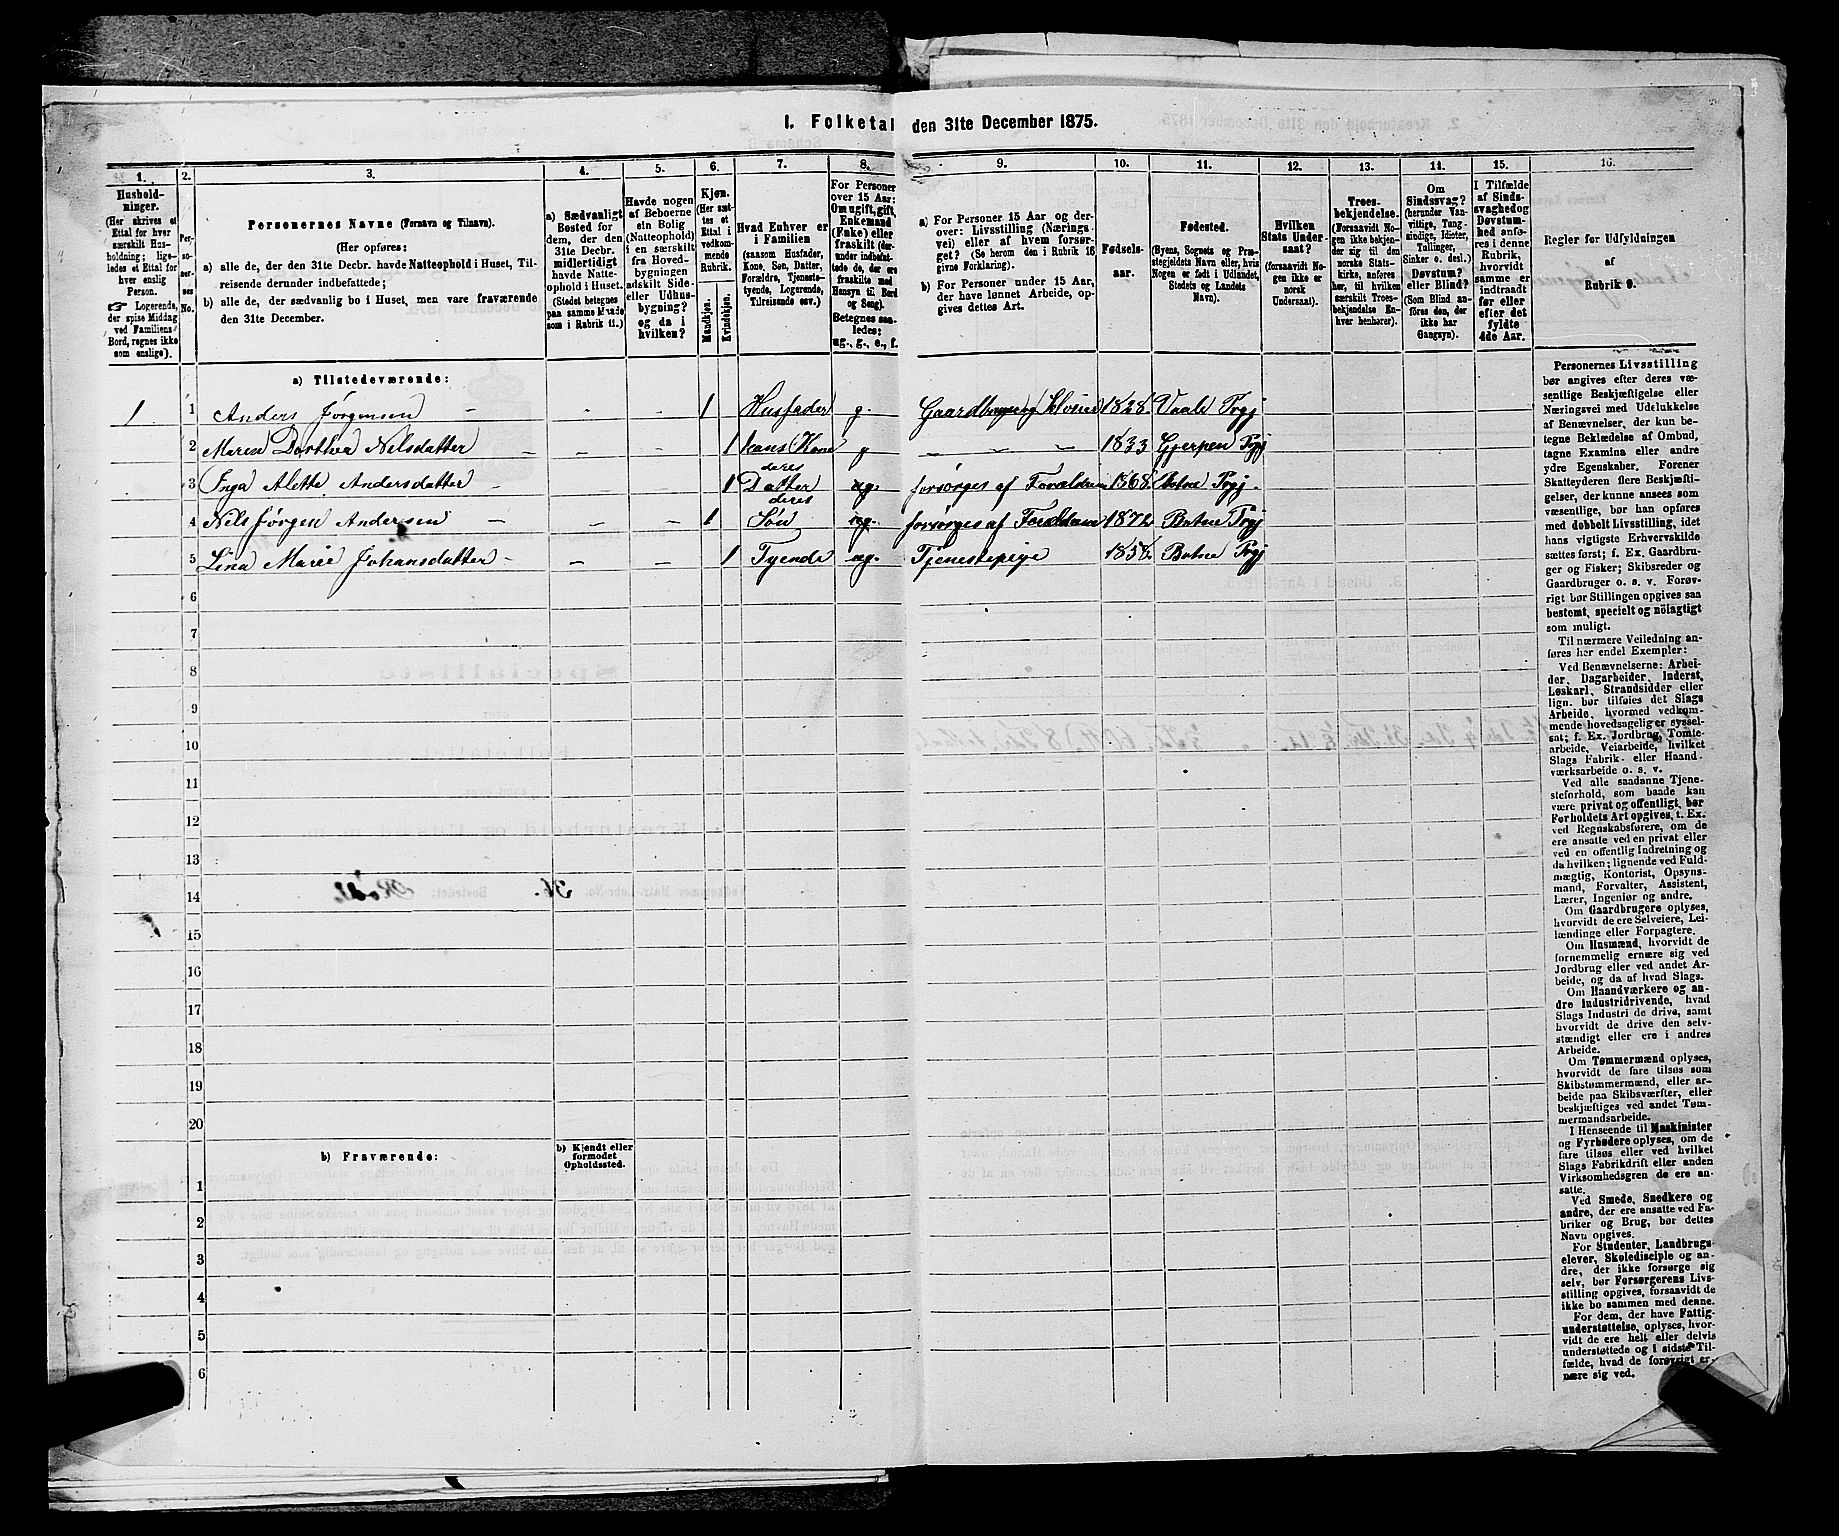 I. Folketal den 31te December 1875.
1. 2. 3. 4. 5. 6. 7. 8. 9. 10. 11. 12. 13. 14. 15. 16.
Hushold-
ninger.
(Her skrives et
Ettal for hver
særskilt Hus-
holdning; lige-
ledes et Ettal for
hver enslig
Person.
☞ Logerende,
der spise Middag
ved Familiens
Bord, regnes ikke
som enslige).
Per-
so-
ner-
nes
No.
Personernes Navne (Fornavn og Tilnavn).
(Her opføres:
a) alle de, der den 31te Decbr. havde Natteophold i Huset, Til-
reisende derunder indbefattede;
b) alle de, der sædvanlig bo i Huset, men vare fraværende
den 31te December.
a) Sædvanligt
Bosted for
dem, der den
31te Decbr.
midlertidigt
havde Natte-
ophold i Huset.
(Stedet betegnes
paa samme Maade
som i Rubrik 11.)
Havde nogen
af Beboerne
sin Bolig
(Natteophold)
i en særskilt
fra Hoved-
bygningen
adskilt Side-
eller Udhus-
bygning?
og da i
hvilken?
Kjøn.
(Her sæt-
tes et
Ettal i
vedkom-
mende
Rubrik.
Mandkjøn.
Kvindekjøn.
Hvad Enhver er
i Familien
(saasom Husfader,
Kone, Søn, Datter,
Forældre, Tjeneste-
tyende, Logerende,
Tilreisende osv.)
For Personer
over 15 Aar:
Om ugift, gift,
Enkemand
(Enke) eller
fraskilt (der-
under indbefat-
tede de, der ere
fraskilte med
Hensyn til Bord
og Seng).
Betegnes saa-
ledes:
ug., g., e., f.
a) For Personer 15 Aar og der-
over: Livsstilling (Nærings-
vei) eller af hvem forsør-
get? (Se herom den i Rubrik 16
givne Forklaring).
b) For Personer under 15 Aar,
der have lønnet Arbeide, op-
gives dettes Art.
Fødsels-
aar.
Fødested.
(Byens, Sognets og Præ-
stegjeldets Navn eller, hvis
Nogen er født i Udlandet,
Stedets og Landets
Navn).
Hvilken
Stats Under-
saat?
(forsaavidt No-
gen ikke er
norsk
Undersaat).
Troes-
bekjendelse.
(Forsaavidt No-
gen ikke bekjen-
der sig til den
norske Stats-
kirke, anføres
her, til hvilken
særskilt Troes-
bekjendelse En-
hver henhører).
Om
Sindssvag?
(herunder Van-
vittige, Tung-
sindige, Idioter,
Tullinger,
Sinker o. desl.)
Døvstum?
eller Blind?
(Som Blind an-
føres den, der
ikke har
Gangsyn).
I Tilfælde
af Sinds-
svaghed og
Døvstum-
hed anfø-
res i denne
Rubrik,
hvorvidt
samme er
indtraadt
før eller
efter det
fyldte
4de Aar.
Regler før Udfyldningen
af
Rubrik 9.
a) Tilstedeværende:
1 1 Anders Jørgensen - - - 1 Husfader g. Gaardbruger og 1828 Vaale Prgj
2 Maren Dorthea Nilsdatter - - - 1 hans Kone g - - - 1833 Gjerpen Prgj
3 Inga Alette Andersdatter - - - 1 deres Datter ug. forsørges af Forældrene 1868 Botne Prgj.
4 Nils Jørgen Andersen - - - 1 deres Søn ug. forsørges af Forældrene 1872 Botne Prgj
5 Lina Marie Johansdatter - - - 1 Tyende ug. Tjenestepige Botne Prgj
6
7
8
9
10
11
12
13
14
15
16
17
18
19
20
b) Fraværende:
b) Kjendt eller
formodet
Opholdssted.
1
2
3
4
5
6
Personernes Livsstilling
bør angives efter deres væ-
sentlige Beskjæftigelse eller
Næringsvei med Udelukkelse
af Benævnelser, der kun be-
tegne Beklædelse af Ombud,
tagne Examina eller andre
ydre Egenskaber. Forener
Skatteyderen flere Beskjæfti-
gelser, der kunne ansees som
væsentlige, bør han opføres
med dobbelt Livsstilling, idet
hans vigtigste Erhvervskilde
sættes først; f. Ex. Gaardbru-
ger og Fisker; Skibsreder og
Gaardbruger o. s. v. Forøv-
rigt bør Stillingen opgives saa
bestemt, specielt og nøiagtigt
som muligt.
Til nærmere Veiledning an-
føres her endel Exempler:
Ved Benævnelserne: Arbei-
der, Dagarbeider, Inderst,
Løskarl, Strandsidder eller
lign. bør tilføies det Slags
Arbeide, hvormed vedkom-
mende hovedsagelig er syssel-
sat; f. Ex. Jordbrug, Tomte-
arbeide, Veiarbeide, hvilket
Slags Fabrik- eller Haand-
værksarbeide o. s. v.
Ved alle saadanne Tjene-
steforhold, som baade kan
være privat og offentligt, bør
Forholdets Art opgives, t. Ex.
ved Regnskabsførere, om de
ere ansatte ved en privat eller
ved en offentlig Indretning og
da hvilken; lignende ved Fuld-
mægtig, Kontorist, Opsyns-
mand, Forvalter, Assistent,
Lærer, Ingeniør og andre.
Om Gaardbrugere oplyses,
hvorvidt de ere Selveiere, Lei-
lændinge eller Forpagtere.
Om Husmænd, hvorvidt de
fornemmelig ernære sig ved
Jordbrug eller ved andet Ar-
beide, og da af hvad Slags.
Om Haandværkere og an-
dre Industridrivende, hvad
Slags Industri de drive, samt
hvorvidt de drive den selv-
stændigt eller ere i andres
Arbeide.
Om Tømmermænd oplyses,
hvorvidt de fare tilsøs som
Skibstømmermænd, eller ar-
beide paa Skibsværfter, eller
beskjæftiges ved andet Tøm-
mermandsarbeide.
I Henseende til Maskinister
og Fyrbødere oplyses, om de
fare tilsøs eller ved hvilket
Slags Fabrikdrift eller anden
Virksomhedsgren de ere an-
satte.
Ved Smede, Snedkere og
andre, der ere ansatte ved Fa-
briker og Brug, bør dettes
Navn opgives.
For Studenter, Landbrugs-
elever, Skoledisciple og an-
dre, der ikke forsørge sig
selv, bør Forsørgerens Livs-
stilling opgives, forsaavidt de
ikke bo sammen med denne.
For dem, der have Fattig-
understøttelse, oplyses, hvor-
vidt de ere helt eller delvis
understøttede og i sidste Til-
fælde, hvad de forøvrigt er-
nære sig ved.